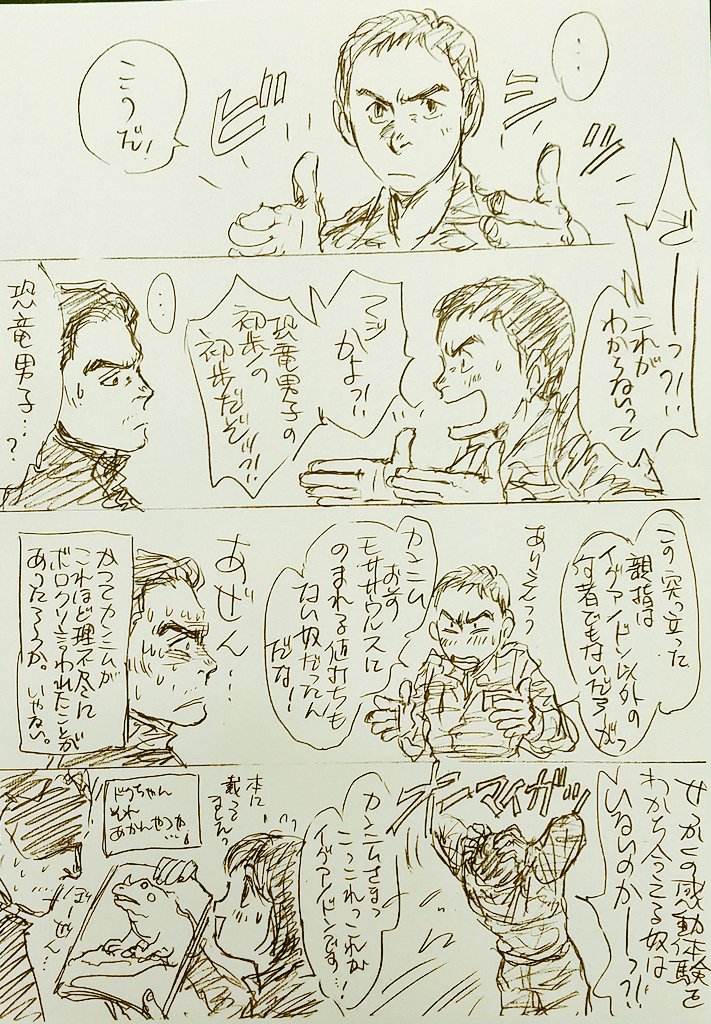 …
ビビ
こう
だ!
どーーっ?!!
これが
わからないって
マジ
かよっ!!
恐竜男子の
初歩の
初歩だぞッ?!!
…
恐竜男子…?
この突っ立った
親指は
イグアノドン以外の
何者でもないだろがっ
ありえんっ
カンニム
お前
モササウルスに
のまれる値打ちも
ない奴だったん
だな!
あぜん…
かつてカンニムが
これほど理不尽に
ボロクソ言われたことが
あったろうか。いやない。
せっかくの感動体験を
わかち合える奴は
いないのかーーっ?!!
オーマイガッ
カンニムさまっ
こっこれっこれが
イグアノドンです…!
本に
載ってました
ドクちゃん
それ
あかんやつや…!
ぼーぜん…